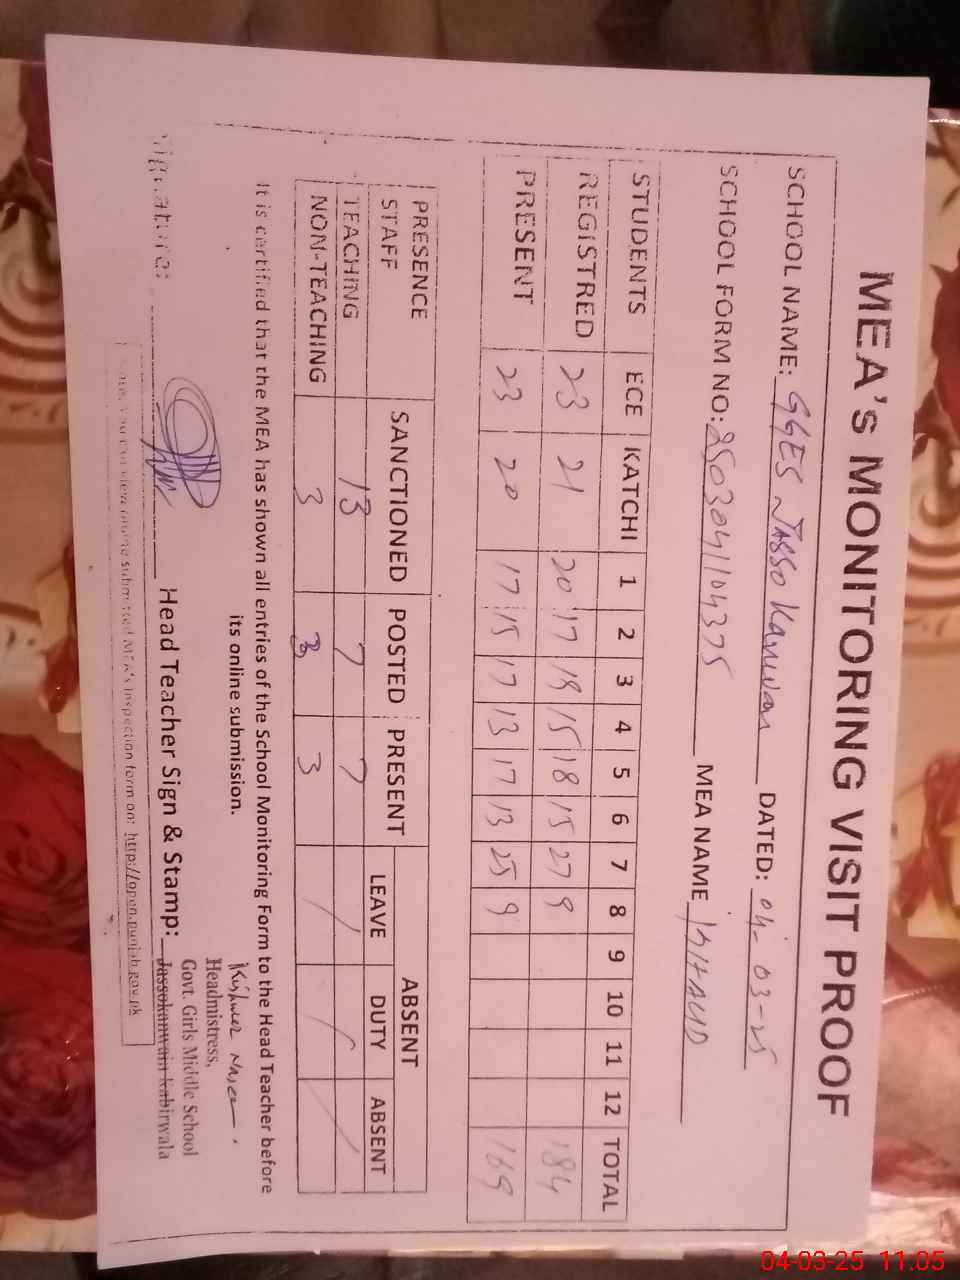 MEA's MONITORING VISIT PROOF
SCHOOL NAME: GGES Jasso Kanwan DATED: 04-03-25
SCHOOL FORM NO: MEA NAME
STUDENTS ECE KATCHI 1 2 3 4 5 6 7 8 9 10 11 12 TOTAL
REGISTRED 23 21 20 17 19 15 18 15 27 9 184
PRESENT 23 20 17 15 17 13 17 13 25 9 169
PRESENCE STAFF SANCTIONED POSTED PRESENT ABSENT
LEAVE DUTY ABSENT
TEACHING 13 7 7 /
NON-TEACHING 3 3 3 /
It is certified that the MEA has shown all entries of the School Monitoring Form to the Head Teacher before
its online submission.
Signature: Head Teacher Sign & Stamp:
Headmistress,
Govt. Girls Middle School
Jassokanwain kabirwala
Note: You can view online submitted MEA's Inspection form on: http://open.punjab.gov.pk
04-03-25 11:05